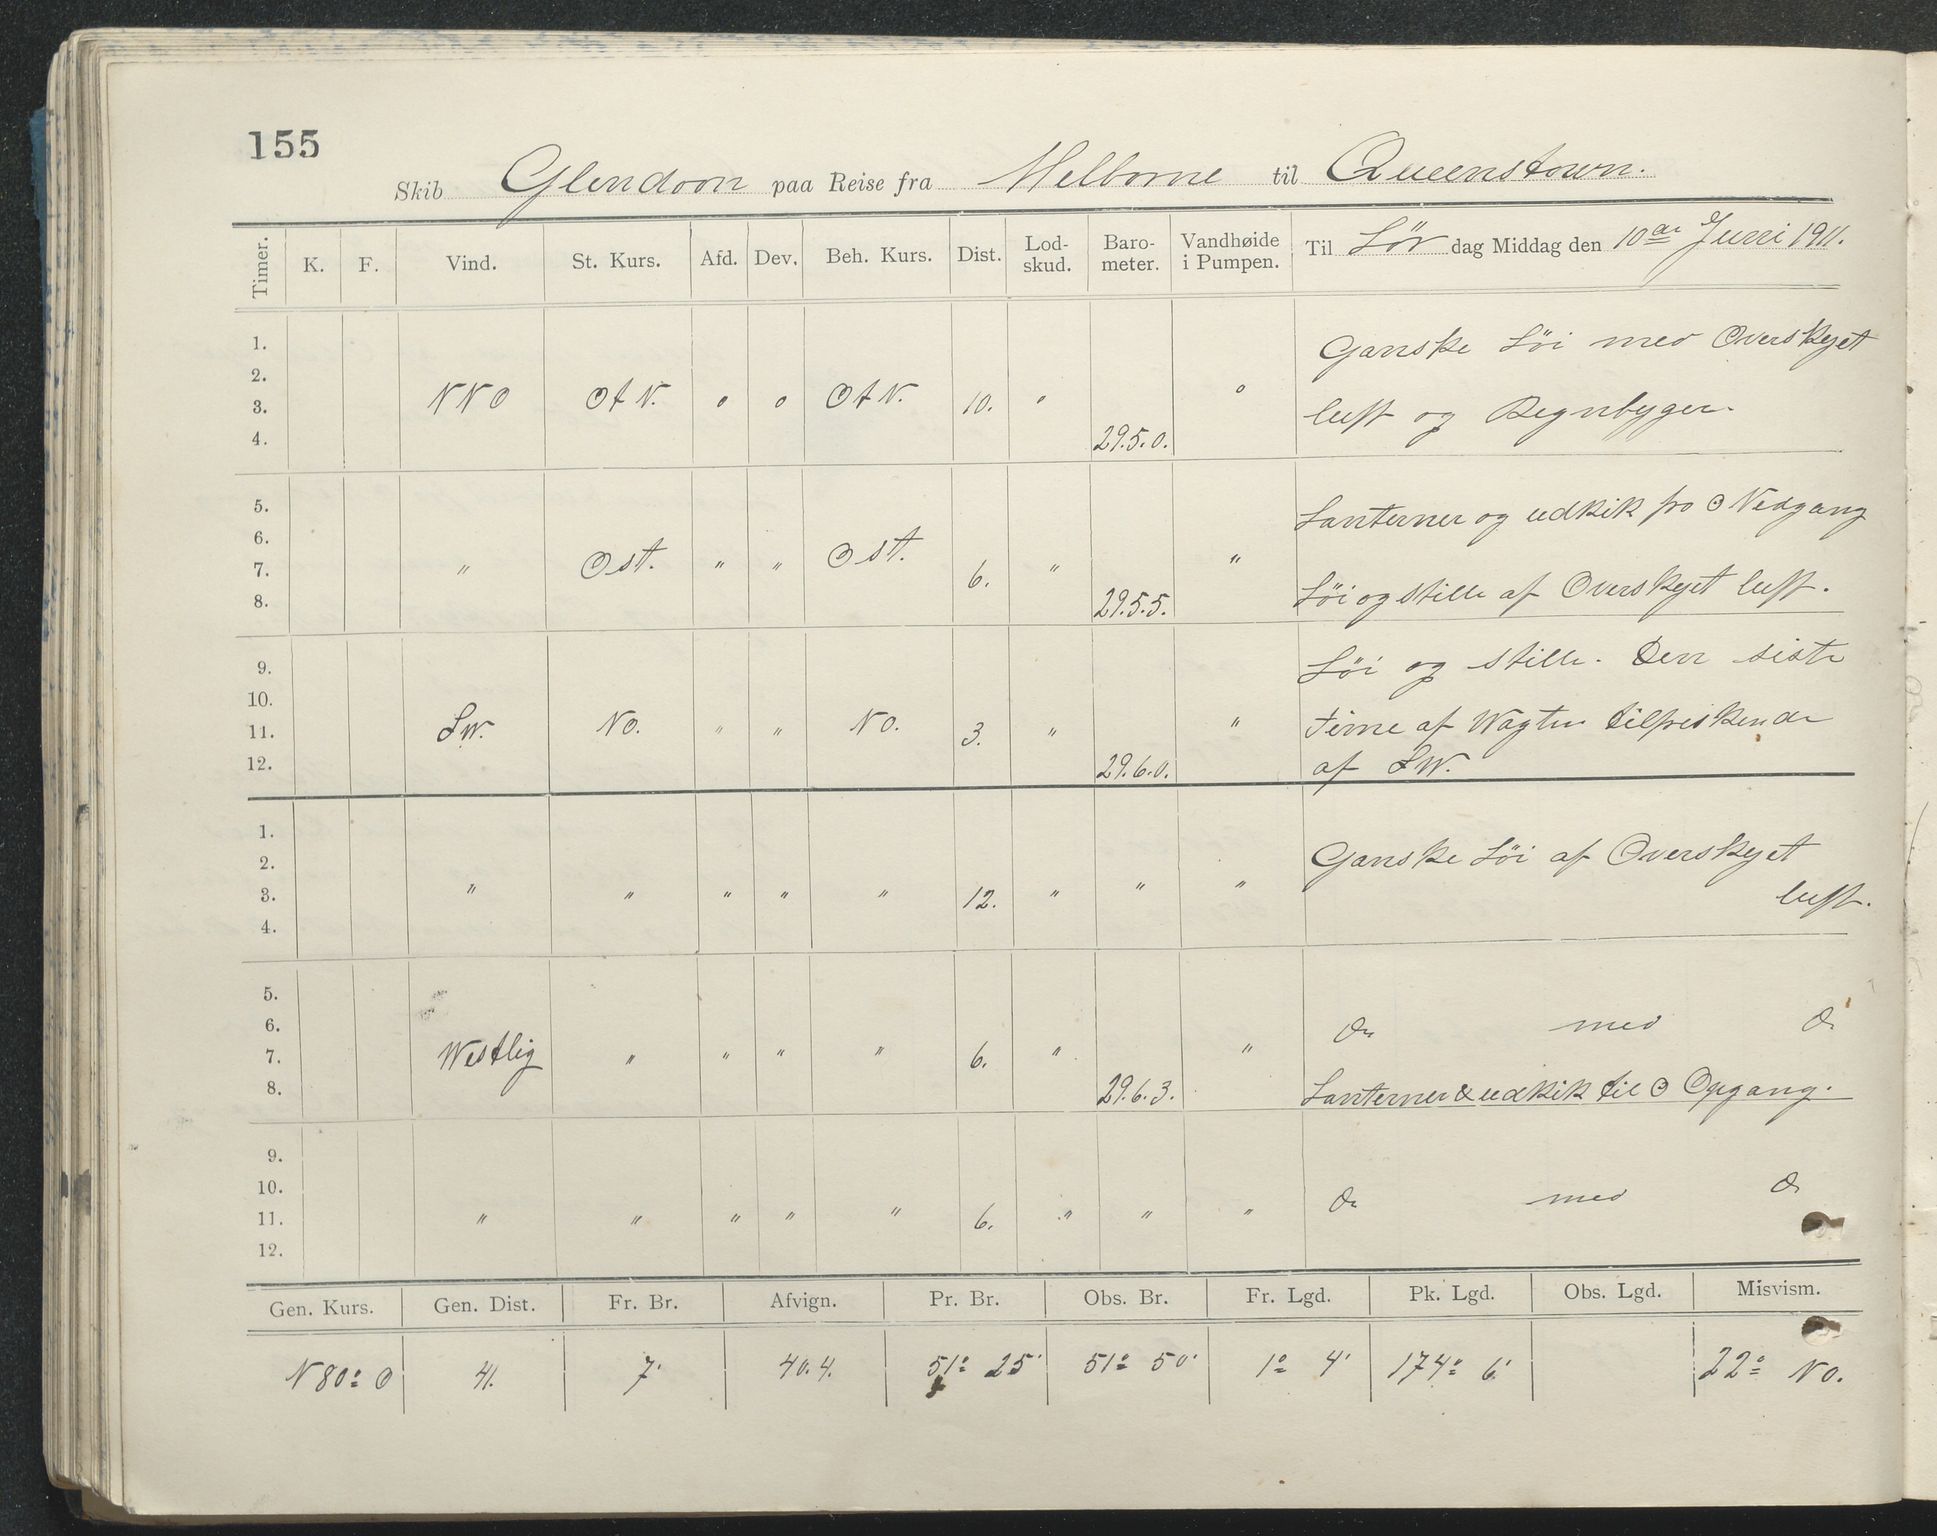 155
Skib Glendoon paa Reise fra Melborne til Queenstown.
Timer. K. F. Vind. St. Kurs. Afd. Dev. Beh. Kurs. Dist. Lod-skud. Baro-meter. Vandhøide i Pumpen. Til Lör dag Middag den 10de Juni 1911.
1. Ganske Löi med Overskyet
2.
3. NNO OtN. o o OtN. 10. o o luft og Regnbyger.
4. 29.5.0.
5. Lanterner og udkik fra ʘ Nedgang
6.
7. " Ost. " " Ost. 6. " "
8. 29.5.5. Löi og stille af Overskyet luft.
9. Löi og stille. Den siste
10.
11. SW. NO. " " NO. 3. " " Time af Wagten tilfriskende
12. 29.6.0. af SW.
1.
2. Ganske Löi af Overskyet
3. " " " " " 12. " " " luft.
4.
5.
6. Do med Do
7. Westlig " " " " 6. " "
8. 29.6.3. Lanterner & udkik til ʘ Opgang.
9.
10. Do med Do
11. " " " " " 6. " " "
12.
Gen. Kurs. Gen. Dist. Fr. Br. Afvign. Pr. Br. Obs. Br. Fr. Lgd. Pk. Lgd. Obs. Lgd. Misvism.
N80° O 41. 7' 40.4. 51° 25' 51° 50' 1° 4' 174° 6' 22° NO.